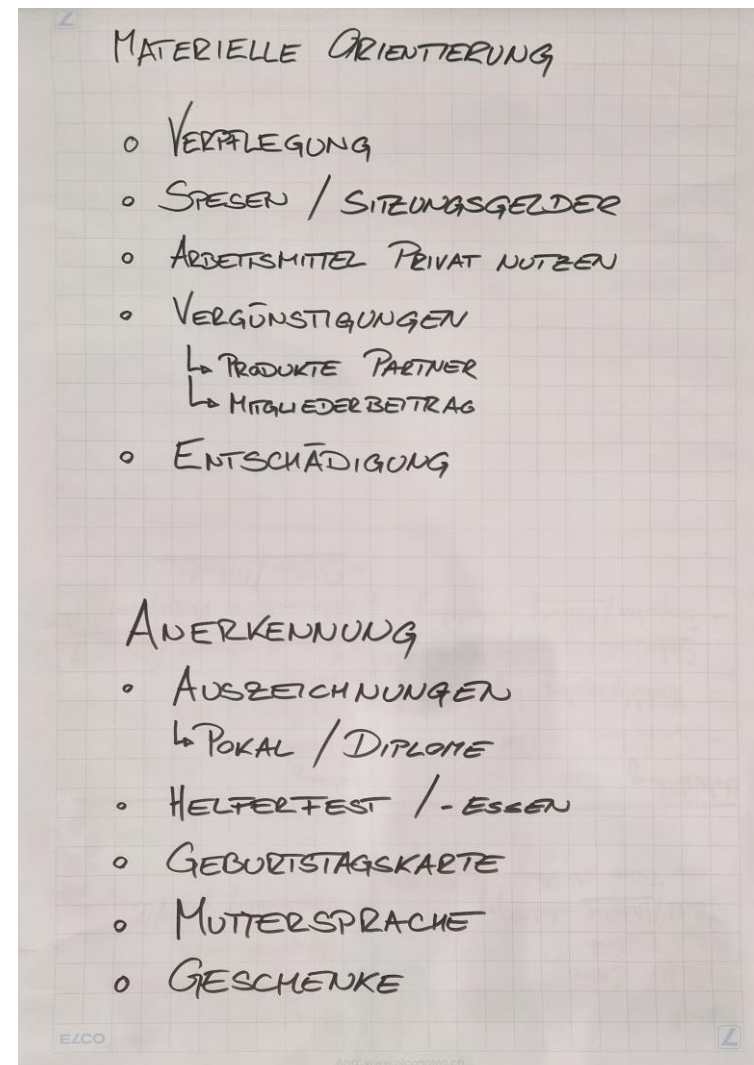 MATERIELLE ORIENTIERUNG
o VERPFLEGUNG
o SPESEN / SITZUNGSGELDER
o ARBEITSMITTEL PRIVAT NUTZEN
o VERGÜNSTIGUNGEN
↳ PRODUKTE PARTNER
↳ MITGLIEDERBEITRAG
o ENTSCHÄDIGUNG
ANERKENNUNG
o AUSZEICHNUNGEN
↳ POKAL / DIPLOME
o HELFERFEST / -ESSEN
o GEBURTSTAGSKARTE
o MUTTERSPRACHE
o GESCHENKE
ELCO